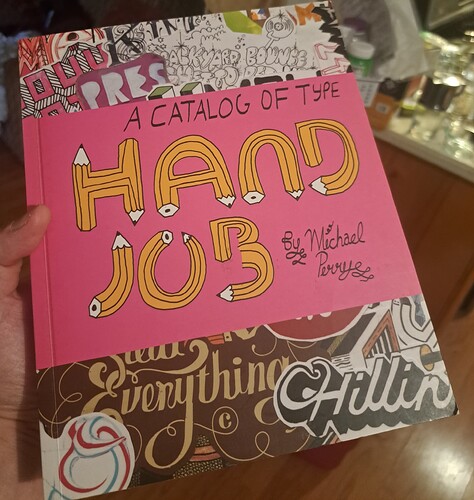 PRES
BACKYARD BOUNCE
A CATALOG OF TYPE
HAND
JOB
By Michael
Perry
Everything
CHillin